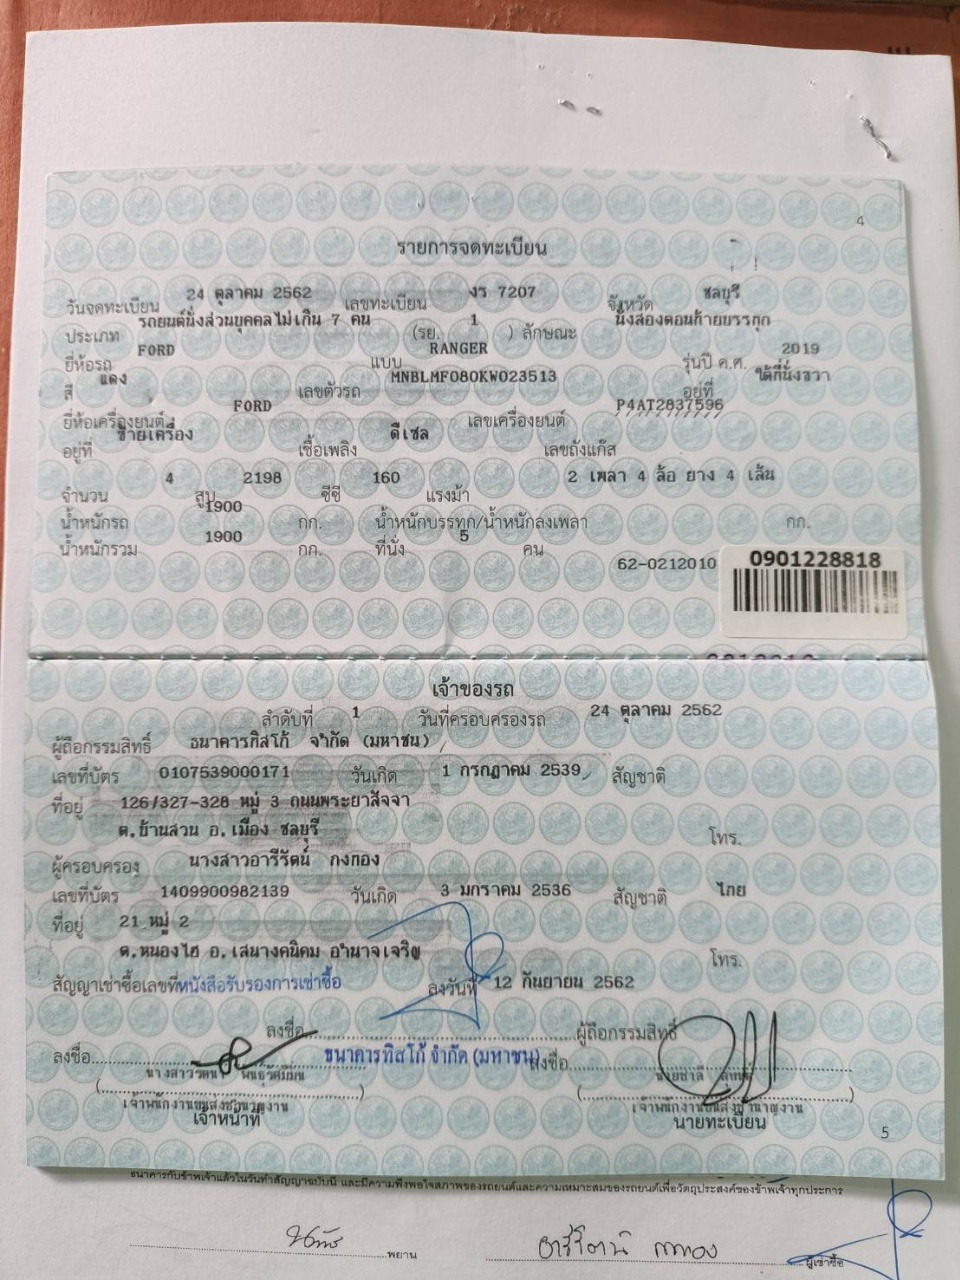 4
รายการจดทะเบียน
วันจดทะเบียน 24 ตุลาคม 2562 เลขทะเบียน งร 7207 จังหวัด ชลบุรี
ประเภท รถยนต์นั่งส่วนบุคคลไม่เกิน 7 คน (รย. 1 ) ลักษณะ นั่งสองตอนท้ายบรรทุก
ยี่ห้อรถ FORD แบบ RANGER รุ่นปี ค.ศ. 2019
สี แดง เลขตัวรถ MNBLMF080KW023513 อยู่ที่ ใต้ที่นั่งขวา
ยี่ห้อเครื่องยนต์ FORD เลขเครื่องยนต์ P4AT2837596
อยู่ที่ ซ้ายเครื่อง เชื้อเพลิง ดีเซล เลขถังแก๊ส
จำนวน 4 สูบ 2198 ซีซี 160 แรงม้า 2 เพลา 4 ล้อ ยาง 4 เส้น
น้ำหนักรถ 1900 กก. น้ำหนักบรรทุก/น้ำหนักลงเพลา กก.
น้ำหนักรวม 1900 กก. ที่นั่ง 5 คน
62-0212010 0901228818
เจ้าของรถ
ลำดับที่ 1 วันที่ครอบครองรถ 24 ตุลาคม 2562
ผู้ถือกรรมสิทธิ์ ธนาคารทิสโก้ จำกัด (มหาชน)
เลขที่บัตร 0107539000171 วันเกิด 1 กรกฎาคม 2539 สัญชาติ
ที่อยู่ 126/327-328 หมู่ 3 ถนนพระยาสัจจา
ต.บ้านสวน อ.เมือง ชลบุรี โทร.
ผู้ครอบครอง นางสาวอารีรัตน์ กงทอง
เลขที่บัตร 1409900982139 วันเกิด 3 มกราคม 2536 สัญชาติ ไทย
ที่อยู่ 21 หมู่ 2
ต.หนองไฮ อ.เสนางคนิคม อำนาจเจริญ โทร.
สัญญาเช่าซื้อเลขที่ หนังสือรับรองการเช่าซื้อ ลงวันที่ 12 กันยายน 2562
ลงชื่อ ผู้ถือกรรมสิทธิ์
ลงชื่อ ธนาคารทิสโก้ จำกัด (มหาชน) ลงชื่อ
เจ้าพนักงานขนส่งชำนาญงาน เจ้าพนักงานขนส่งชำนาญงาน
เจ้าหน้าที่ นายทะเบียน
5
ธนาคารกับข้าพเจ้าแล้วในวันทำสัญญาฉบับนี้ และมีความพึงพอใจสภาพของรถยนต์และความเหมาะสมของรถยนต์เพื่อวัตถุประสงค์ของข้าพเจ้าทุกประการ
พยาน อารีรัตน์ กงทอง ผู้เช่าซื้อ